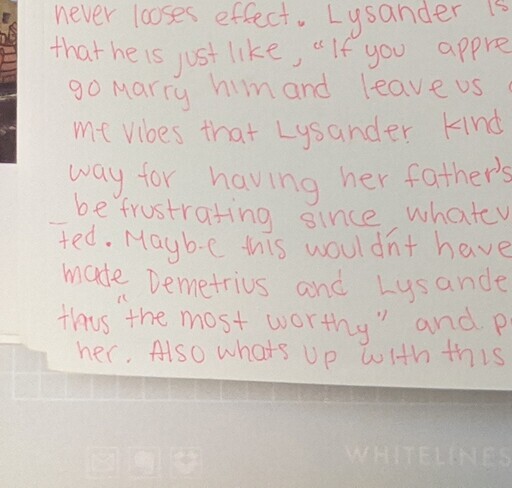 never looses effect. Lysander is
that he is just like, "If you appre
go Marry him and leave us
me vibes that Lysander kind
way for having her father's
be frustrating since, whatev
ted. Maybe this wouldn't have
made Demetrius and Lysande
thus "the most worthy" and p
her. Also whats up with this
WHITELINES